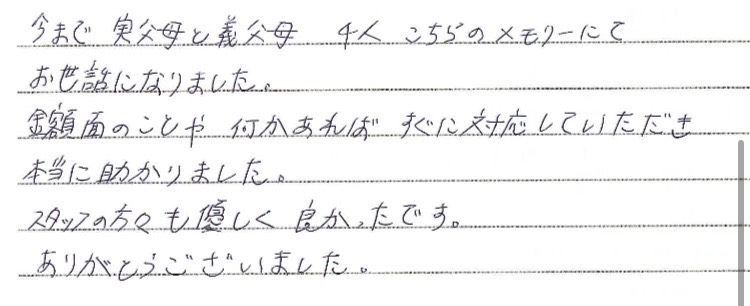 今まで 実父母と義父母 4人 こちらのメモリーにて
お世話になりました。
金額面のことや 何かあれば すぐに対応していただき
本当に助かりました。
スタッフの方々も優しく 良かったです。
ありがとうございました。